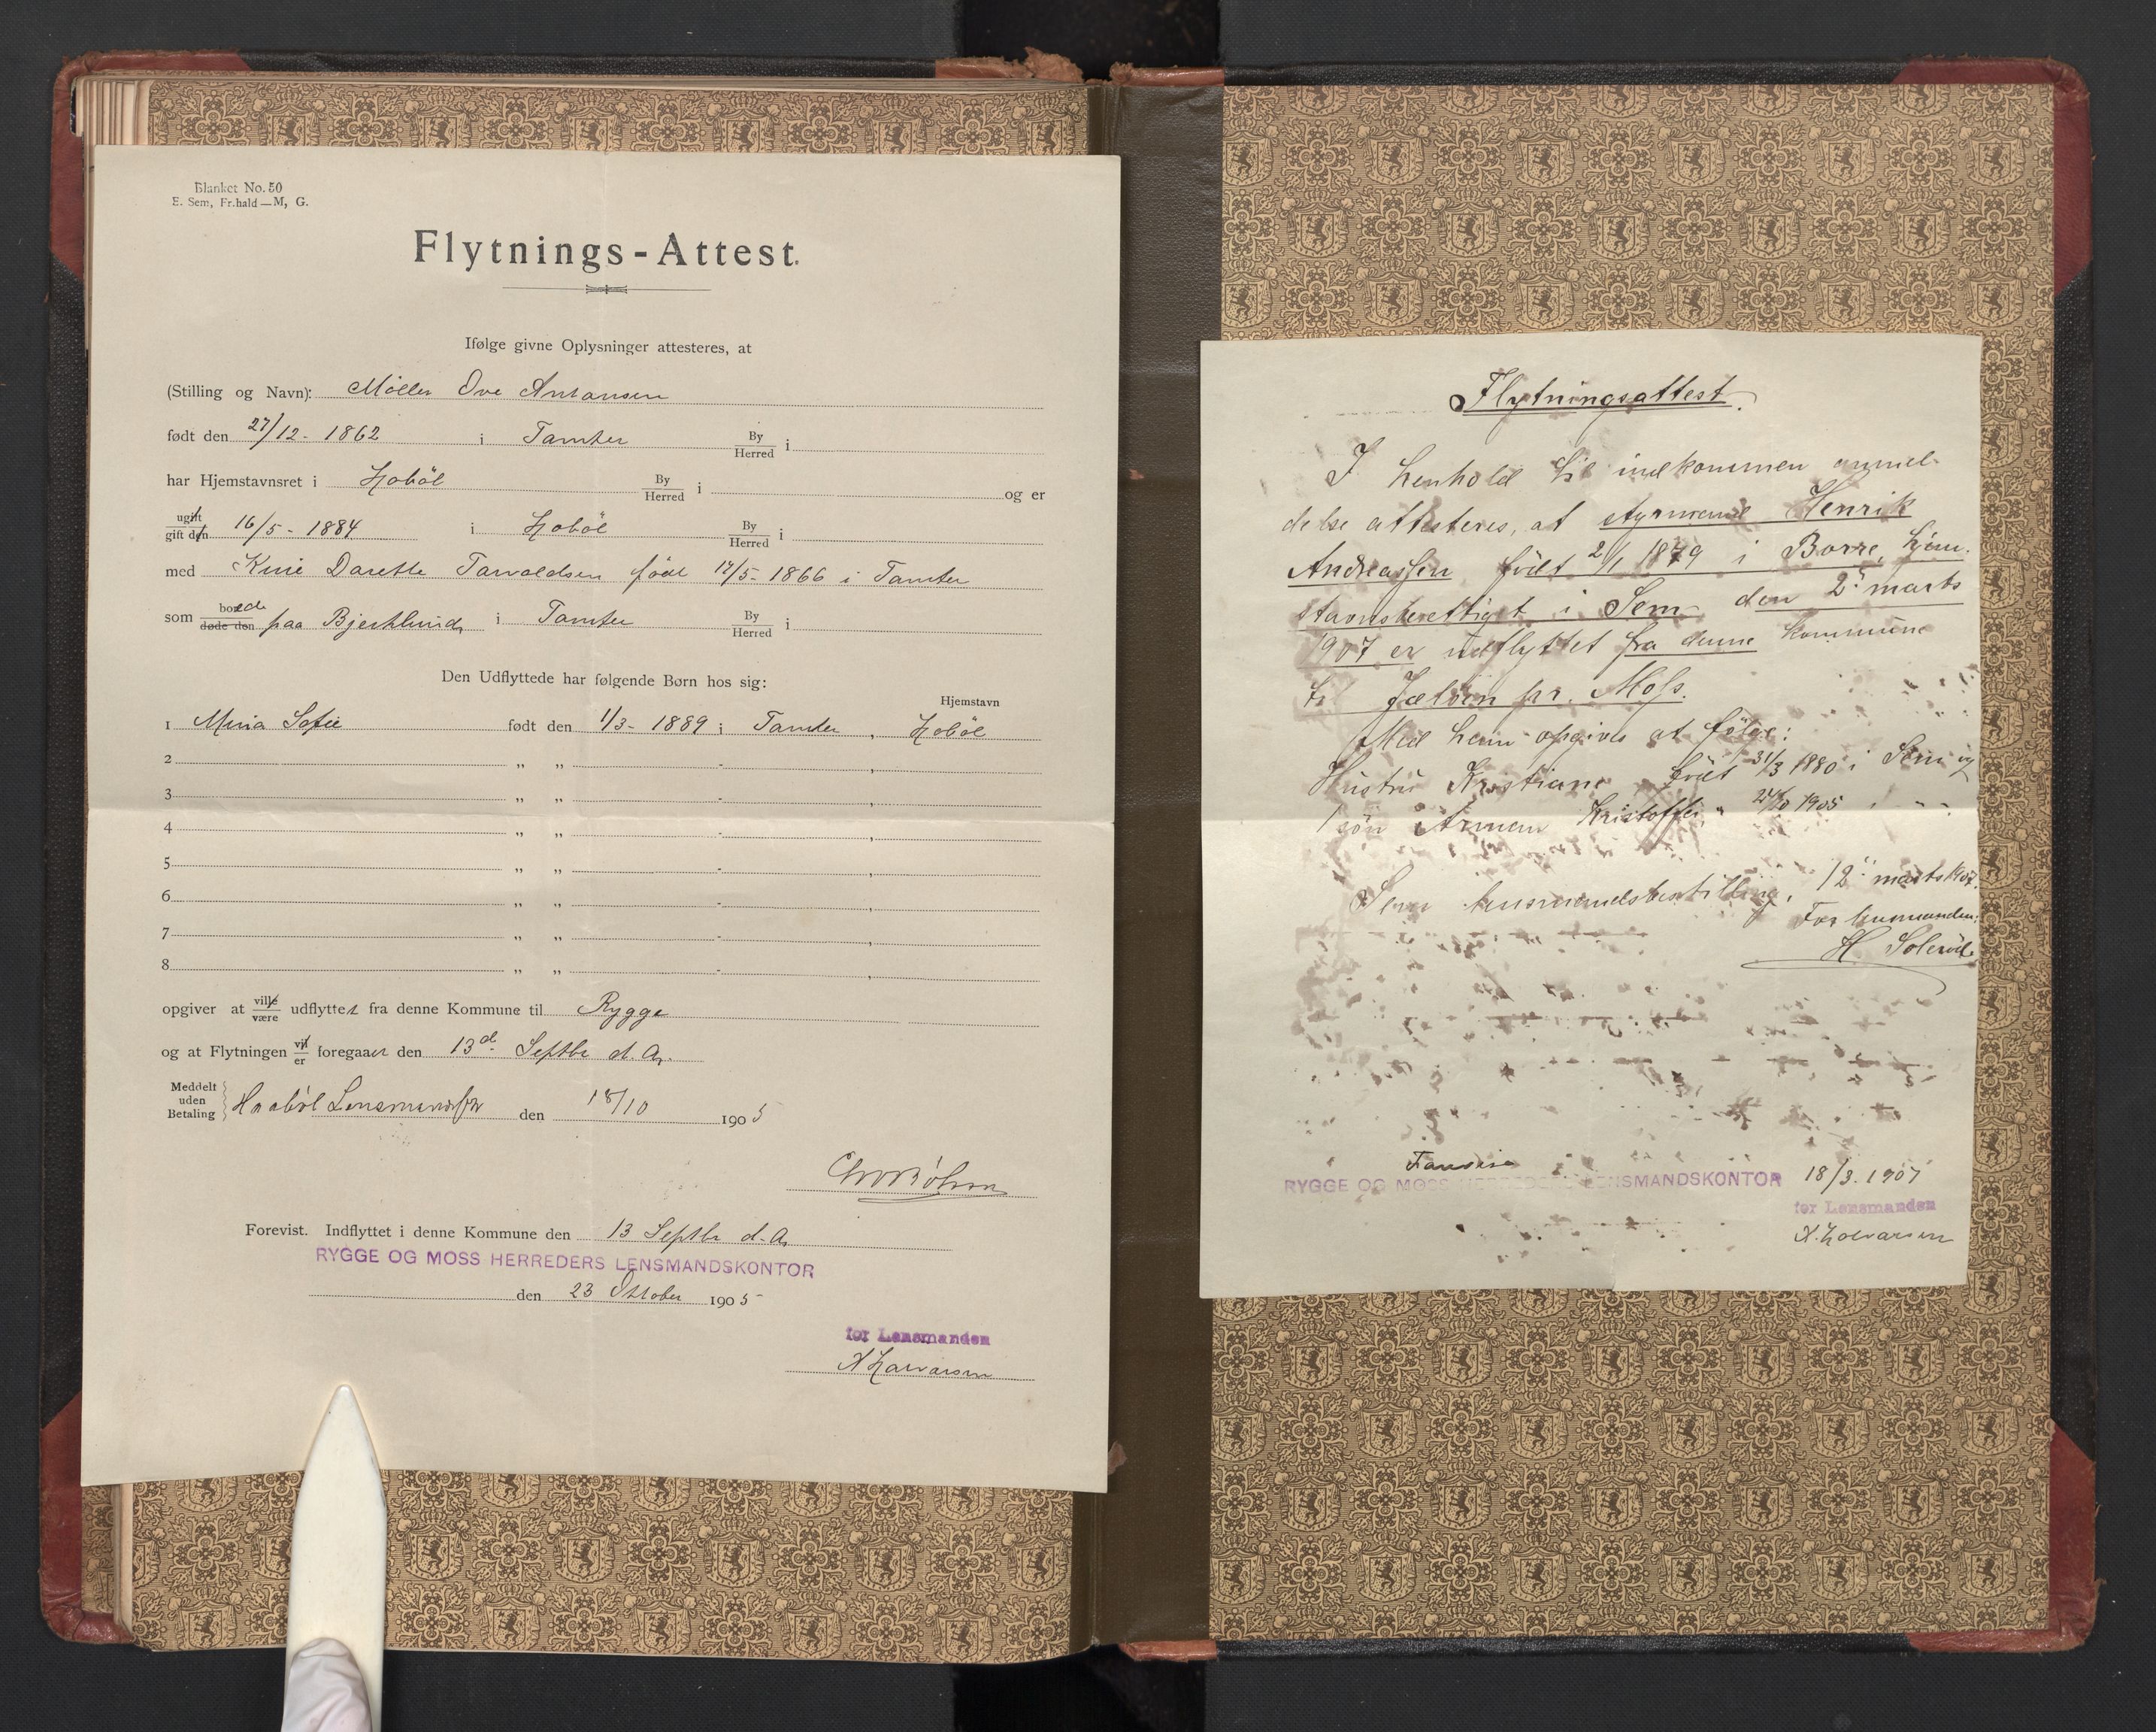 Blanket No. 50
E. Sem, Fr.hald—M, G.
Flytnings-Attest.
Ifølge givne Oplysninger attesteres, at
(Stilling og Navn): Møller Ove Antonsen
født den 27/12- 1862 i Tomter By Herred i
har Hjemstavnsret i Hobøl By Herred i og er
ugift gift den 16/5- 1884 i Hobøl By Herred i
med Dorette født 17/5- 1866 i Tomter
som boede døde den paa Bjerklund i Tomter By Herred i
Den Udflyttede har følgende Børn hos sig:
Hjemstavn
1 Mina Sofie født den 1/3- 1889 i Tomter, Hobøl
2 „ „ - ,
3 „ „ - ,
4 „ „ - ,
5 „ „ - ,
6 „ „ - ,
7 „ „ - ,
8 „ „ - ,
opgiver at ville være udflyttet fra denne Kommune til Rygge
og at Flytningen vil er foregaaet den 13d Septbr d. A.
Meddelt uden Betaling Haabøl den 18/10 1905
Forevist. Indflyttet i denne Kommune den 13 Septbr d. A.
RYGGE OG MOSS HERREDERS LENSMANDSKONTOR
den 23 Oktober 1905
for Lensmanden
Flytningsattest.
I henhold til indkommen anmel-
delse attesteres, at styrmand Henrik
Andreassen født 2/1 1879 i Borre, hjem-
stavnsberettiget i Sem den 2. marts
1907 er udflyttet fra denne kommune
til Jeløen pr. Moss.
Med ham opgives at følge:
Hustru Kristiane født 31/3 1880 i Sem og
1 søn Kristoffer " 1905 i " "
Sem lensmandsbestilling, 12. marts 1907.
For lensmanden:
RYGGE OG MOSS HERREDERS LENSMANDSKONTOR 18/3. 1907
for Lensmanden